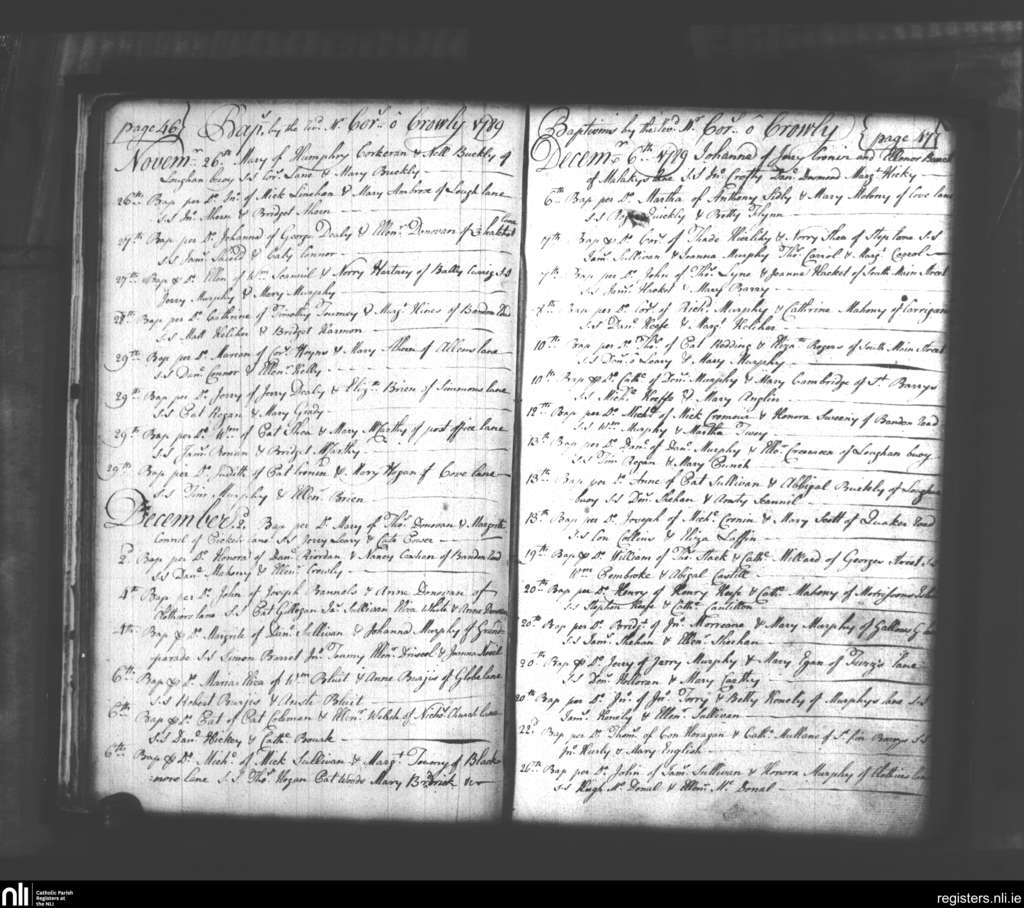 page 46} Bap.t by the Rev.d Mr. Cor.s ô Crowly 1789
Novem.r 26.th Mary of Humphry Corkeran & Nell Buckly of
Loughan buoy S.S Cor.s Lane & Mary Buckly
26.th Bap per D.o Jn.o of Mick Linehan & Mary Ambroe of Lough lane
S.S Jn.o Ahern & Bridget Ahern
27.th Bap per D.o Johanna of George Dealy & Ellen.r Donovan of
S.S Jam.s & Caty Connor
27.th Bap & D.o Ellen of W.m Scannil & Norry Hartney of Batty S.S
Jerry Murphy & Mary Murphy
28.th Bap per D.o Catherine of Timothy Toumey & Marg.t Hines of Bandon Road
S.S Matt Keliher & Bridget Harmon
29.th Bap per D.o Marian of Cor.s & Mary Ahern of Allens lane
S.S Dan.l Connor & Ellen.r Kelly
29.th Bap per D.o Jerry of Jerry Dealy & Eliz.th Brien of Simmons lane
S.S Pat Regan & Mary Grady
29.th Bap per D.o W.m of Pat Shea & Mary McCarthy of post office lane
S.S Jam.s Ronan & Bridget McCarthy
29.th Bap per D.o Judith of Pat Cronin & Mary Hogan of Cove lane
S.S Tim.y Murphy & Ellen.r Brien
December 2. Bap per D.o Mary of Tho.s Donovan & Margrete
Connel of Cricket lane S.S Jerry Leary & Cate
2.d Bap per D.o Honora of Dan.l Riordan & Nancy of Bandon Road
S.S Dan.l Mahony & Ellen.r Crowly
4.th Bap per D.o John of Joseph Bannels & Anne Donovan of
Clothiers lane S.S Pat Jas. Sullivan Eliza White & Anne Donovan
4.th Bap & D.o Margrete of Dan.l Sullivan & Johanna Murphy of Grand
parade S.S Simon Barret Jn.o Tommy Ellen.r Driscol &
6.th Bap & D.o Maria Eliza of W.m Bluit & Anne Burges of Globe lane
S.S Robert Burges & Bluit
6.th Bap & D.o Pat of Pat Coleman & Ellen.r Welch of Nich.s Church lane
S.S Dan.l Hickey & Cath.e Bourk
6.th Bap & D.o Mich.l of Mick Sullivan & Marg.t Tommy of Black
more lane S.S Tho.s Hogan Pat Woods Mary Brodrick
Baptisms by the Rev.d Mr. Cor.s ô Crowly {page 47}
Decem.r 6.th 1789 Johanna of Jerry Cronin and Ellenor
of Malakys lane S.S Jn.o Crofty Dan.l Desmond Marg.t Hicky
6.th Bap per D.o Martha of Anthony & Mary Molony of Cove lane
S.S Quickly & Betty Flynn
7.th Bap & D.o Cor.s of Thade & Norry Shea of Step lane S.S
Jam.s Sullivan & Joanna Murphy Tho.s Carrol & Marg.t Carrol
7.th Bap per D.o John of Tho.s Lyne & Joanna Hacket of South Main Street
S.S Jam.s Hacket & Mary Barry
8.th Bap per D.o Cor.s of Rich.d Murphy & Cathrine Mahony of
S.S Dan.l Keefe & Marg.t Kelihar
10.th Bap per D.o Tho.s of Pat Redding & Eliza.th Rogers of South Main Street
S.S Den.s o Leary & Mary Murphy
10.th Bap & D.o Cath.e of Den.s Murphy & Mary Cambridge of S.t Barrys
S.S Mich.l Keeffe & Mary Anglin
12.th Bap per D.o Mich.l of Mick Cremeur & Honora Sweeny of Bandon Road
S.S W.m Murphy & Martha
13.th Bap per D.o Dan.l of Dan.l Murphy & Elen.r of Loughan buoy
S.S Tim Regan & Mary Bunch
13.th Bap per D.o Anne of Pat Sullivan & Abbigal Buckley of Loughan
buoy S.S Den.s Sheehan & Scannil
13.th Bap per D.o Joseph of Mich.l Cronin & Mary Scott of Quaker Road
S.S Con Collins & Eliza Laffin
19.th Bap & D.o William of Tho.s Stack & Cath.e Millard of Georges Street S.S
W.m Pembroke & Abigal Castill
20.th Bap per D.o Henry of Henry Keefe & Cath.e Mahony of
S.S Stephen Keefe & Cath.e Cantillon
20.th Bap per D.o Bridg.t of Jn.o Morreane & Mary Murphy of Gallows
S.S Jam.s Shehan & Ellen.r Sheehan
20.th Bap & D.o Jerry of Jerry Murphy & Mary Egan of lane
S.S Den.s Holloran & Mary Carthy
20.th Bap per D.o Jn.o of Jn.o Torry & Betty Kenely of Murphys lane S.S
Jam.s Kenely & Ellen.r Sullivan
22.d Bap per D.o Thom.s of Con Horagan & Cath.e Mullane of S.t Fin Barrys S.S
Jn.o Hurly & Mary English
26.th Bap per D.o John of Jam.s Sullivan & Honora Murphy of Clothiers lane
S.S Hugh Mc. Donal & Ellen.r Mc. Donal
nli
Catholic Parish
Registers at
the NLI
registers.nli.ie